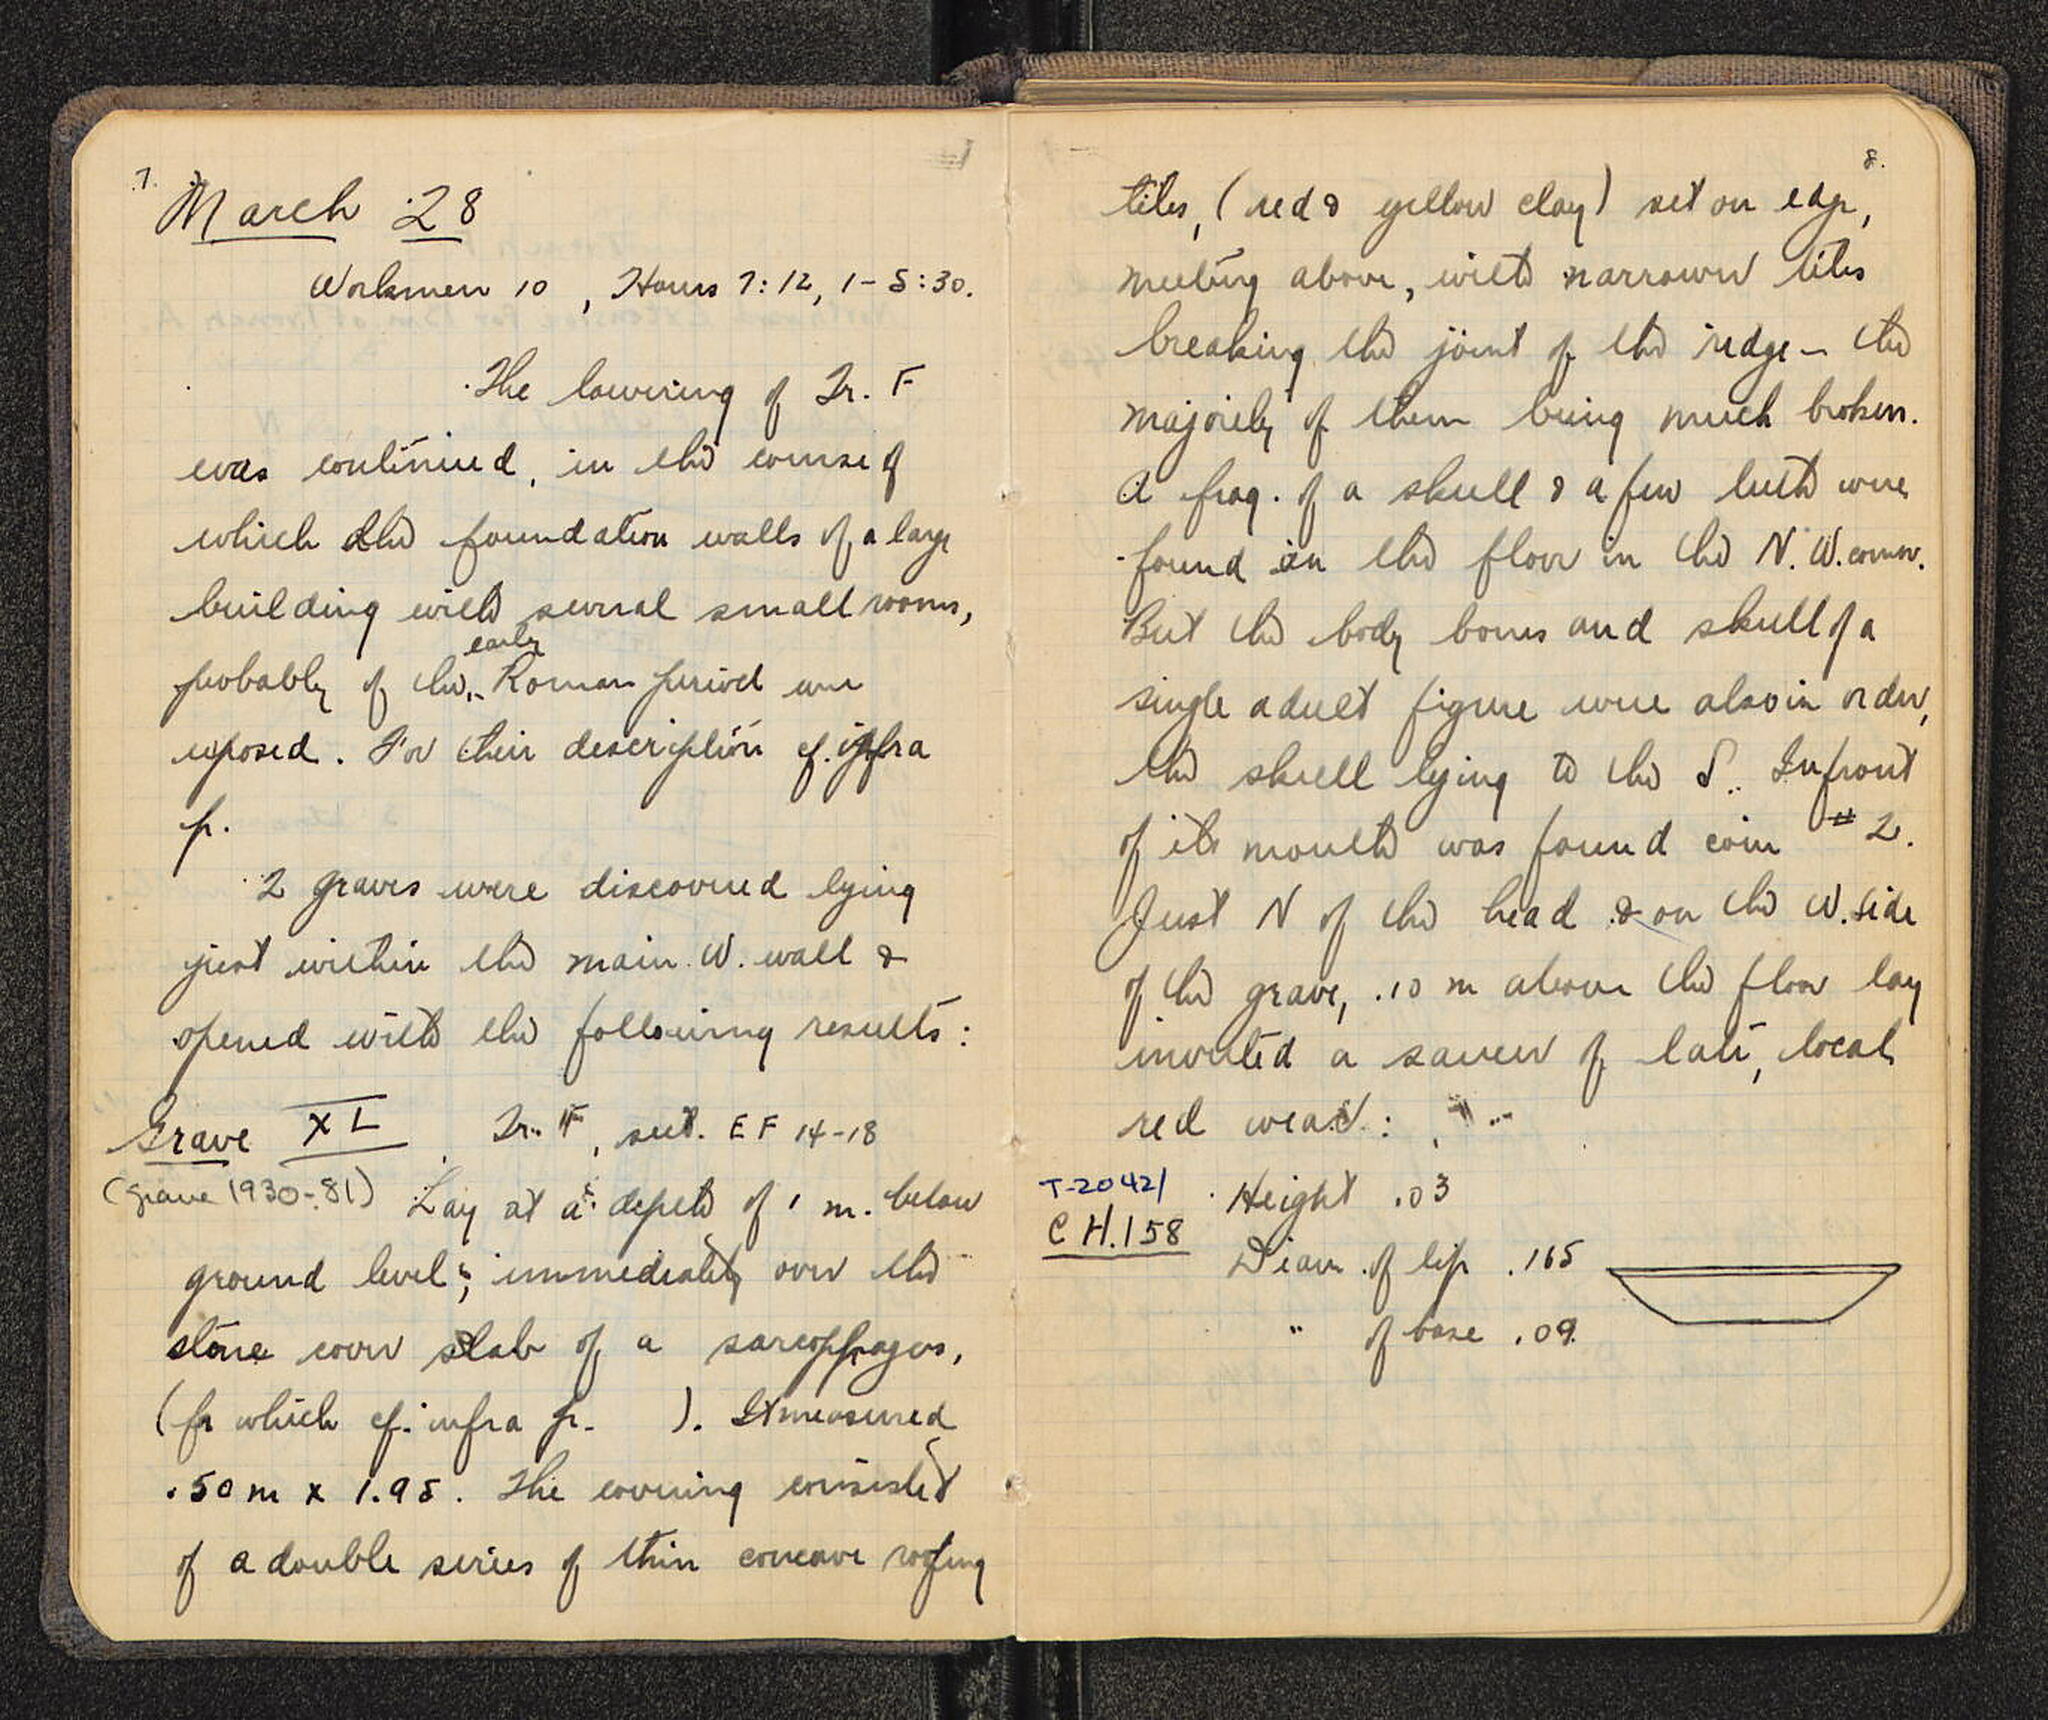 7.
March 28
Workmen 10, Hours 7:12, 1-5:30.
The lowering of Tr. F
was continued, in the course of
which the foundation walls of a large
building with several small rooms,
early
probably of the Roman period were
exposed. For their description cf. infra
p.
2 graves were discovered lying
just within the main W. wall &
opened with the following results:
Grave XL Tr. F, sect. EF 14-18
(grave 1930-81) Lay at a depth of 1 m. below
ground level; immediately over the
stone cover slab of a sarcophagus,
(for which cf. infra p. ). It measured
.50 m x 1.95. The covering consisted
of a double series of thin concave roofing
8.
tiles, (red & yellow clay) set on edge,
meeting above, with narrower tiles
breaking the joint of the ridge - the
majority of them being much broken.
A frag. of a skull & a few teeth were
found in the floor in the N.W. corner.
But the body bones and skull of a
single adult figure were also in order,
the skull lying to the S. In front
of its mouth was found coin # 2.
Just N of the head & on the W. side
of the grave, .10 m above the floor lay
inverted a saucer of late, local
red ware:
T-2042/ Height .03
CH.158
Diam. of lip .165
" of base .09